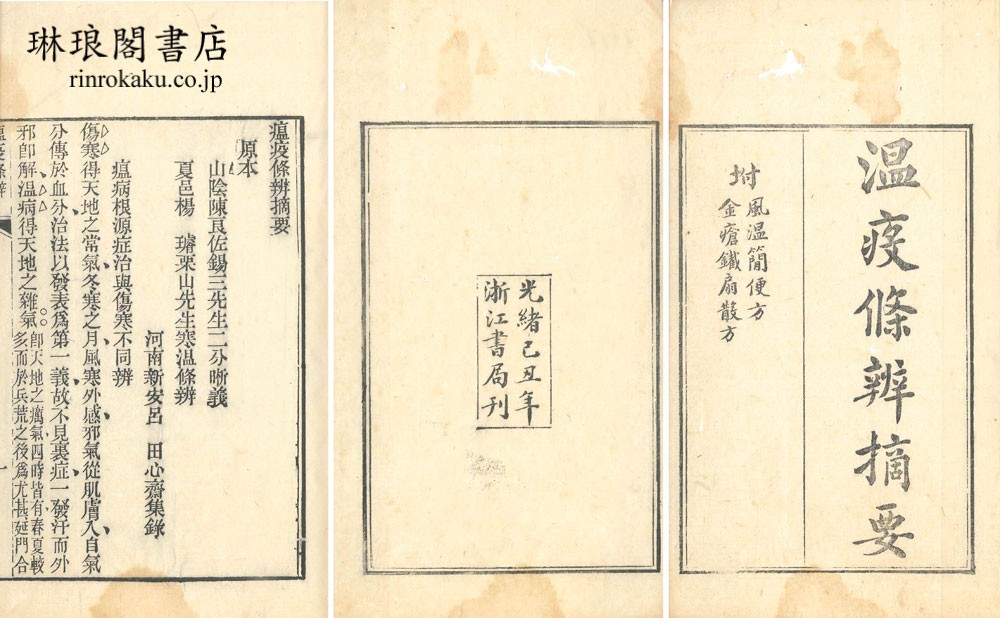 琳琅閣書店
rinrokaku.co.jp
温疫條辨摘要
坿
風溫簡便方
金瘡鐵扇散方
光緒己丑年
浙江書局刊
瘟疫條辨摘要
原本
山陰陳良佐錫三先生二分晰義
夏邑楊 璿栗山先生寒温條辨
河南新安呂 田心齋集錄
瘟病根源症治與傷寒不同辨
傷寒得天地之常氣冬寒之月風寒外感邪氣從肌膚入自氣
分傳於血分治法以發表爲第一義故不見裏症一發汗而外
邪卽解温病得天地之雜氣
卽天地之癘氣四時皆有春夏較
多而於兵荒之後爲尤甚延門合
瘟疫條辨
一